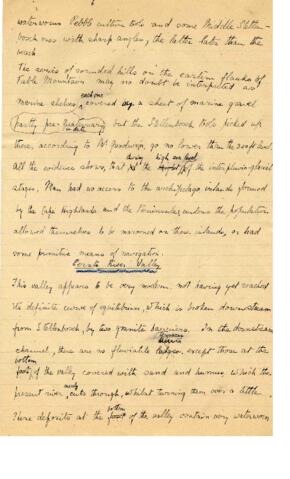 waterworn Pebble culture tools and some Middle Stellen-
bosch ones with sharp angles, the latter later than the
wash.
The series of rounded hills on the eastern flanks of
Table Mountain may no doubt be interpreted as
marine shelves, each one covered by a sheet of marine gravel
(partly pre-Quaternary in date) but the Stellenbosch tools picked up
there, according to Mr Goodwin, go no lower than the
all the evidence shows, that during high sea level of the interpluvio-glacial
stages, Man had no access to the archipelago islands formed
by the Cape Highlands and the Peninsula, unless the population
allowed themselves to be marooned on these islands, or had
some primitive means of navigation.
Eerste River Valley
This valley appears to be very modern, not having yet reached
its definite curve of equilibrium, which is broken downstream
from Stellenbosch, by two granite barriers. In the downstream
channel, there are no fluviatile terraces, except those at the
bottom of the valley covered with sand and humus, which the
present river only cuts through, whilst turning them over a little.
These deposits at the bottom of the valley contain very waterworn